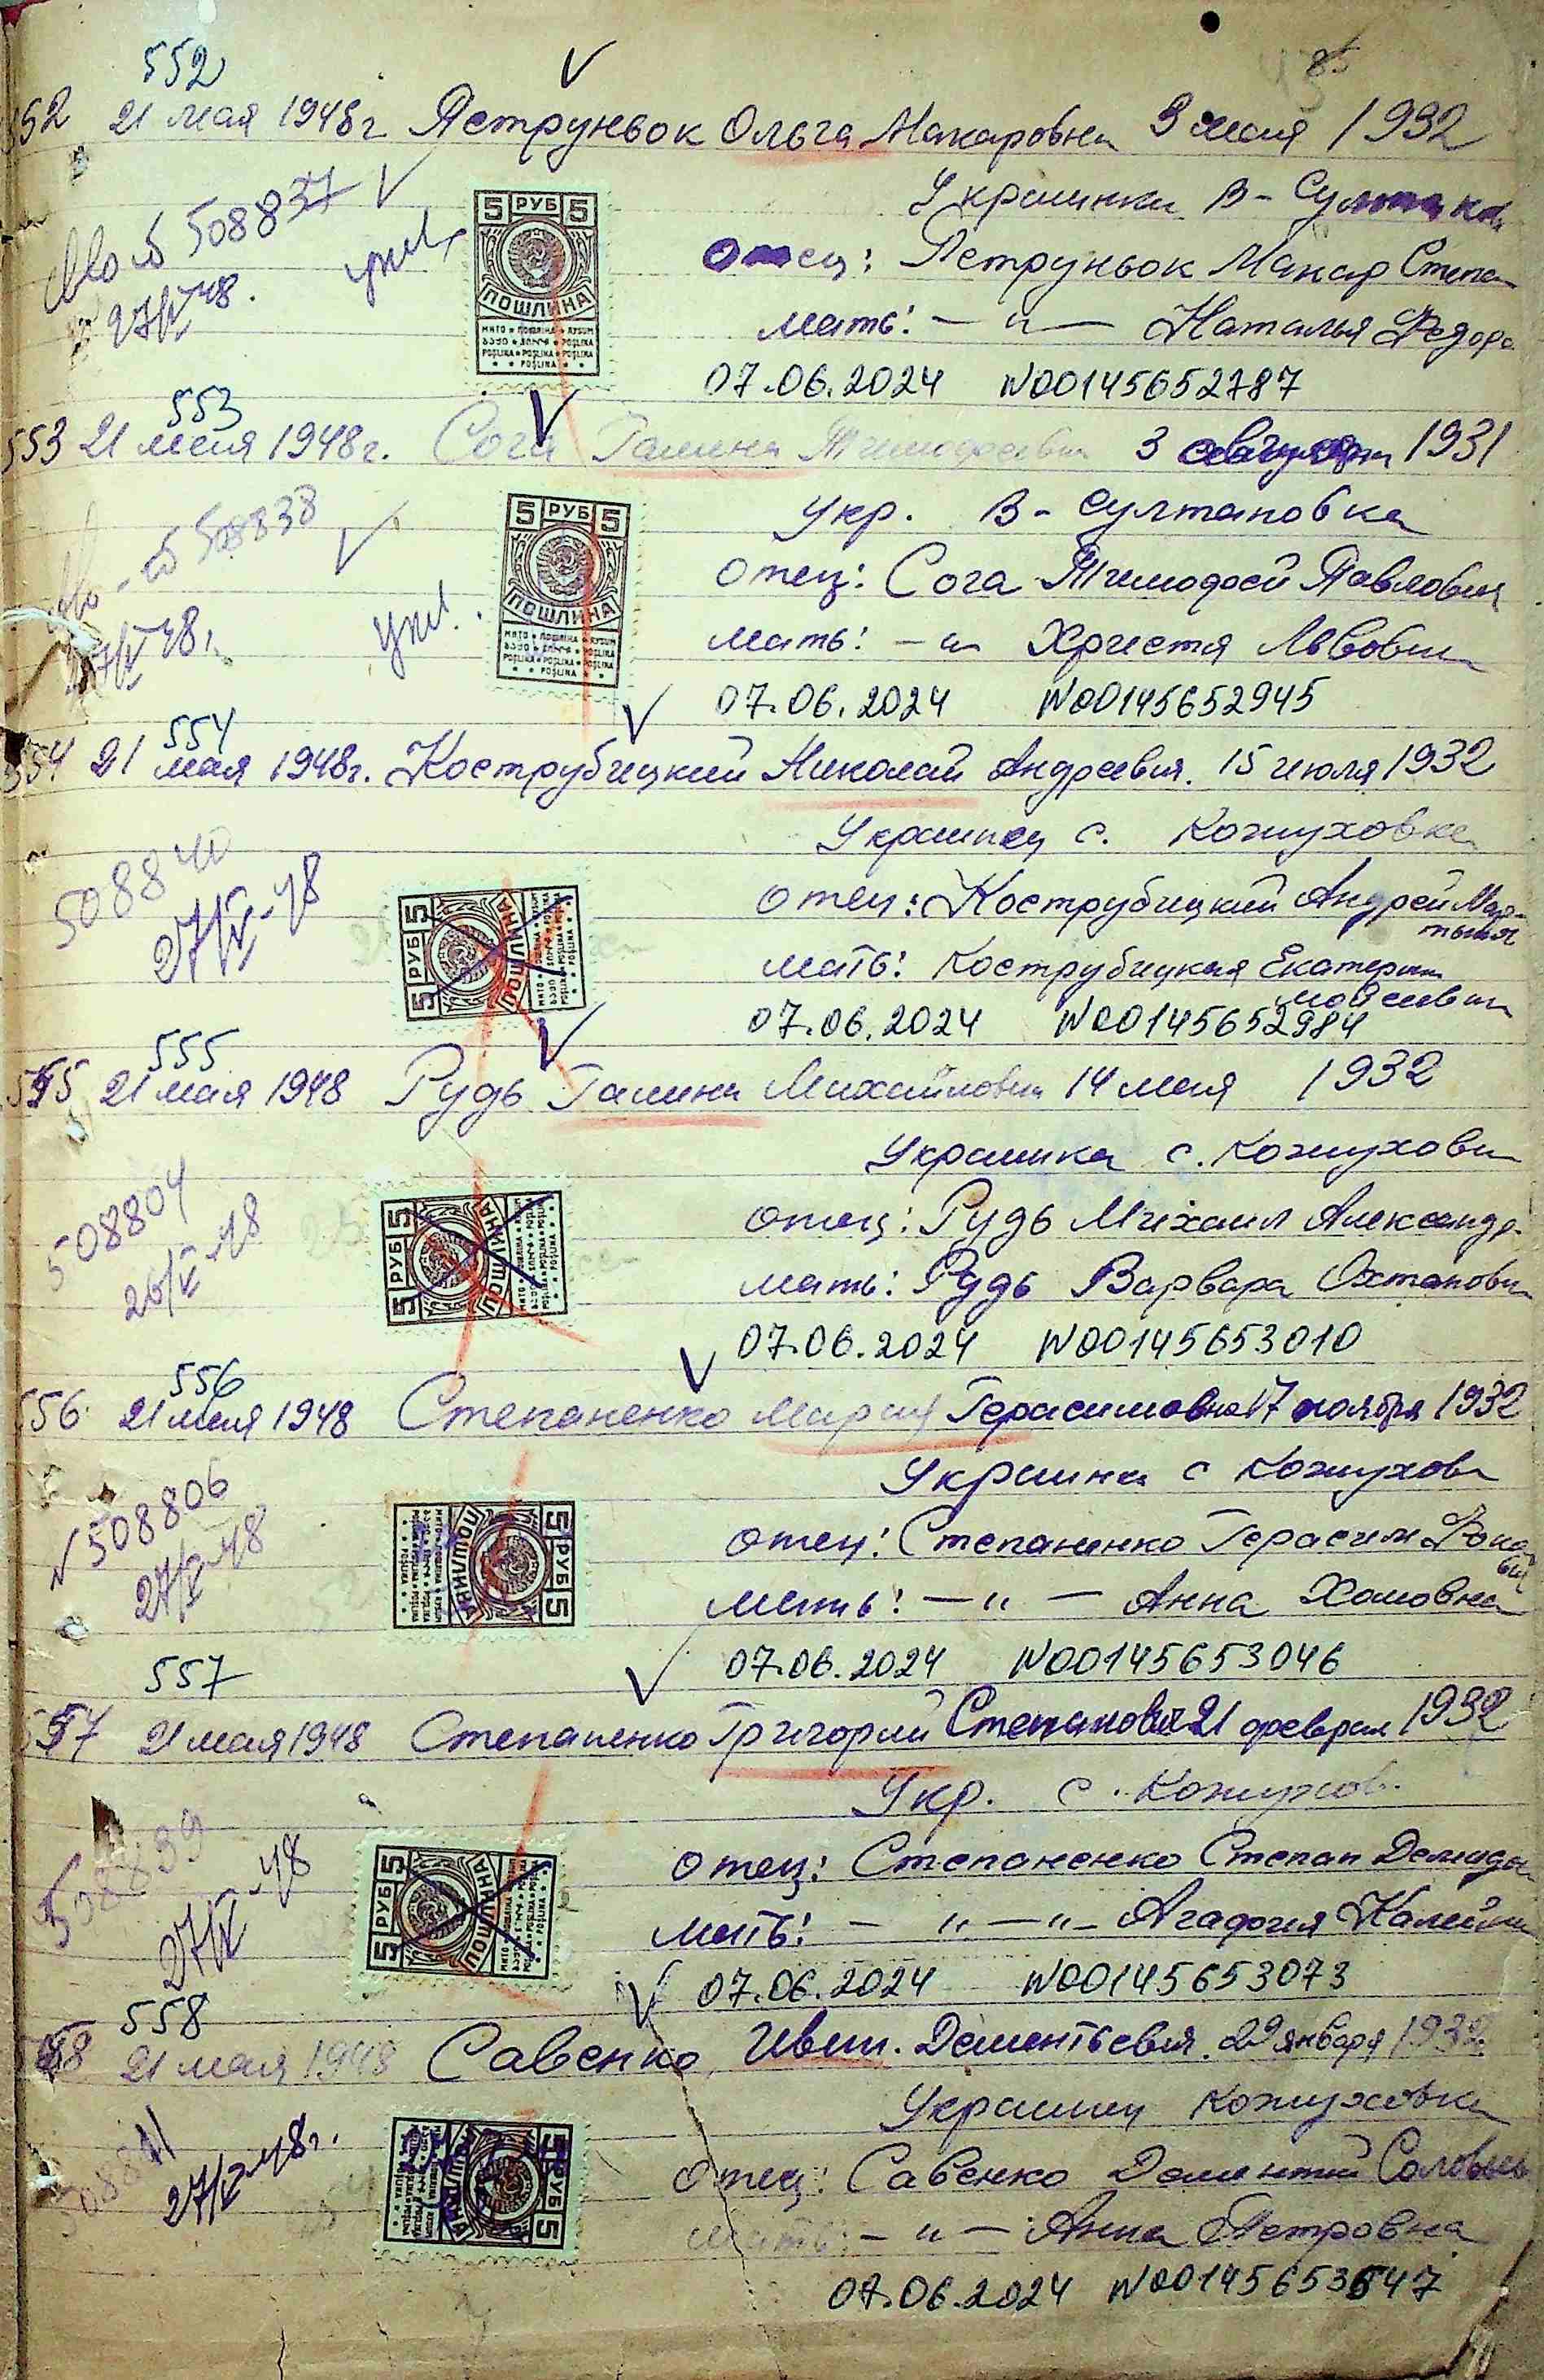 85
552
552 21 мая 1948г Яструньок Ольга Макаровна 3 мая 1932
Украинка В-Султановка
Св-во б 508837
27/V 48.
укл.
5 РУБ 5
ПОШЛИНА
отец: Яструньок Макар Степан
мать: — „ — Наталья Федоро
07.06.2024 №00145652787
553
553 21 мая 1948г. Сога Галина Тимофеевна 3 1931
Укр. В-Султановка
508838
27/V 48г.
укл.
5 РУБ 5
ПОШЛИНА
отец: Сога Тимофей Павлович
мать: — „ Христя Львовна
07.06.2024 №00145652945
554
554 21 мая 1948г. Кострубицкий Николай Андреевич. 15 июля 1932
Украинец с. Кожуховка
508840
27/V-48
5 РУБ 5
ПОШЛИНА
отец: Кострубицкий Андрей Мар-
тынович
мать: Кострубицкая Екатерина
Мойсеевна
07.06.2024 №00145652984
555
555 21 мая 1948 Рудь Галина Михайловна 14 мая 1932
Украинка с. Кожуховка
508804
26/V-48
5 РУБ 5
ПОШЛИНА
отец: Рудь Михаил Александр.
мать: Рудь Варвара Охтановн
07.06.2024 №00145653010
556
556 21 мая 1948 Степаненко Мария Герасимовна 17 ноября 1932
Украинка с Кожухов
№508806
27/V-48
5 РУБ 5
ПОШЛИНА
отец: Степаненко Герасим Фока
вич
мать: — „ — Анна Хомовна
07.06.2024 №00145653046
557
557 21 мая 1948 Степаненко Григорий Степанович 21 феврал 1932
Укр. с. Кожухов.
508839
27/V-48
5 РУБ 5
ПОШЛИНА
отец: Степаненко Степан Демидо
мать: — „ — „ — Агафия Калейни
07.06.2024 №00145653073
558
558 21 мая 1948 Савенко Иван. Дементьевич. 29 января 1932
Украинец Кожуховка
508811
27/V-48г.
5 РУБ 5
ПОШЛИНА
отец: Савенко Дементий Соловьев
мать: — „ — Анна Петровна
07.06.2024 №00145653547